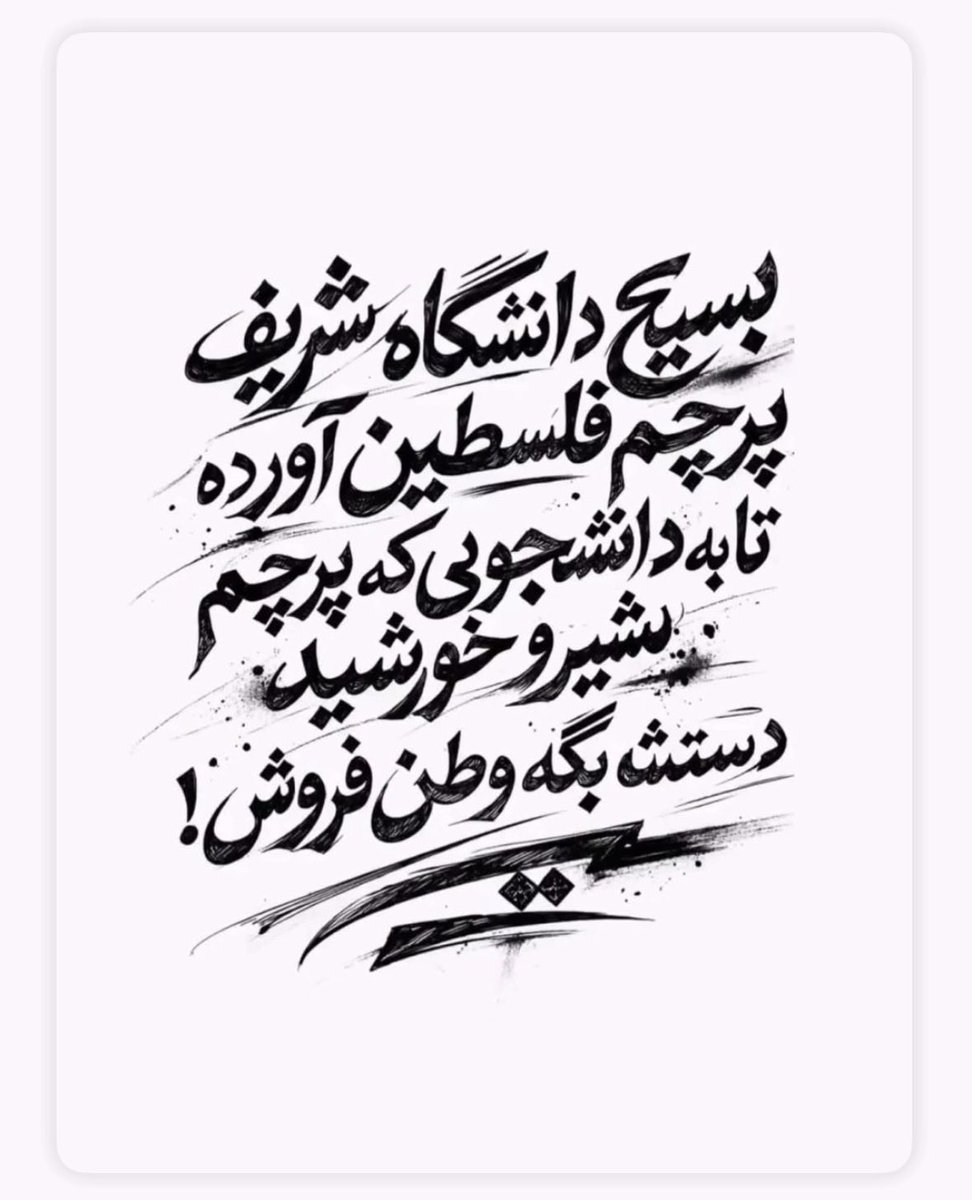 بسیج دانشگاه شریف
پرچم فلسطین آورده
تا به دانشجویی که پرچم
شیر و خورشید
دستشه بگه وطن فروش!